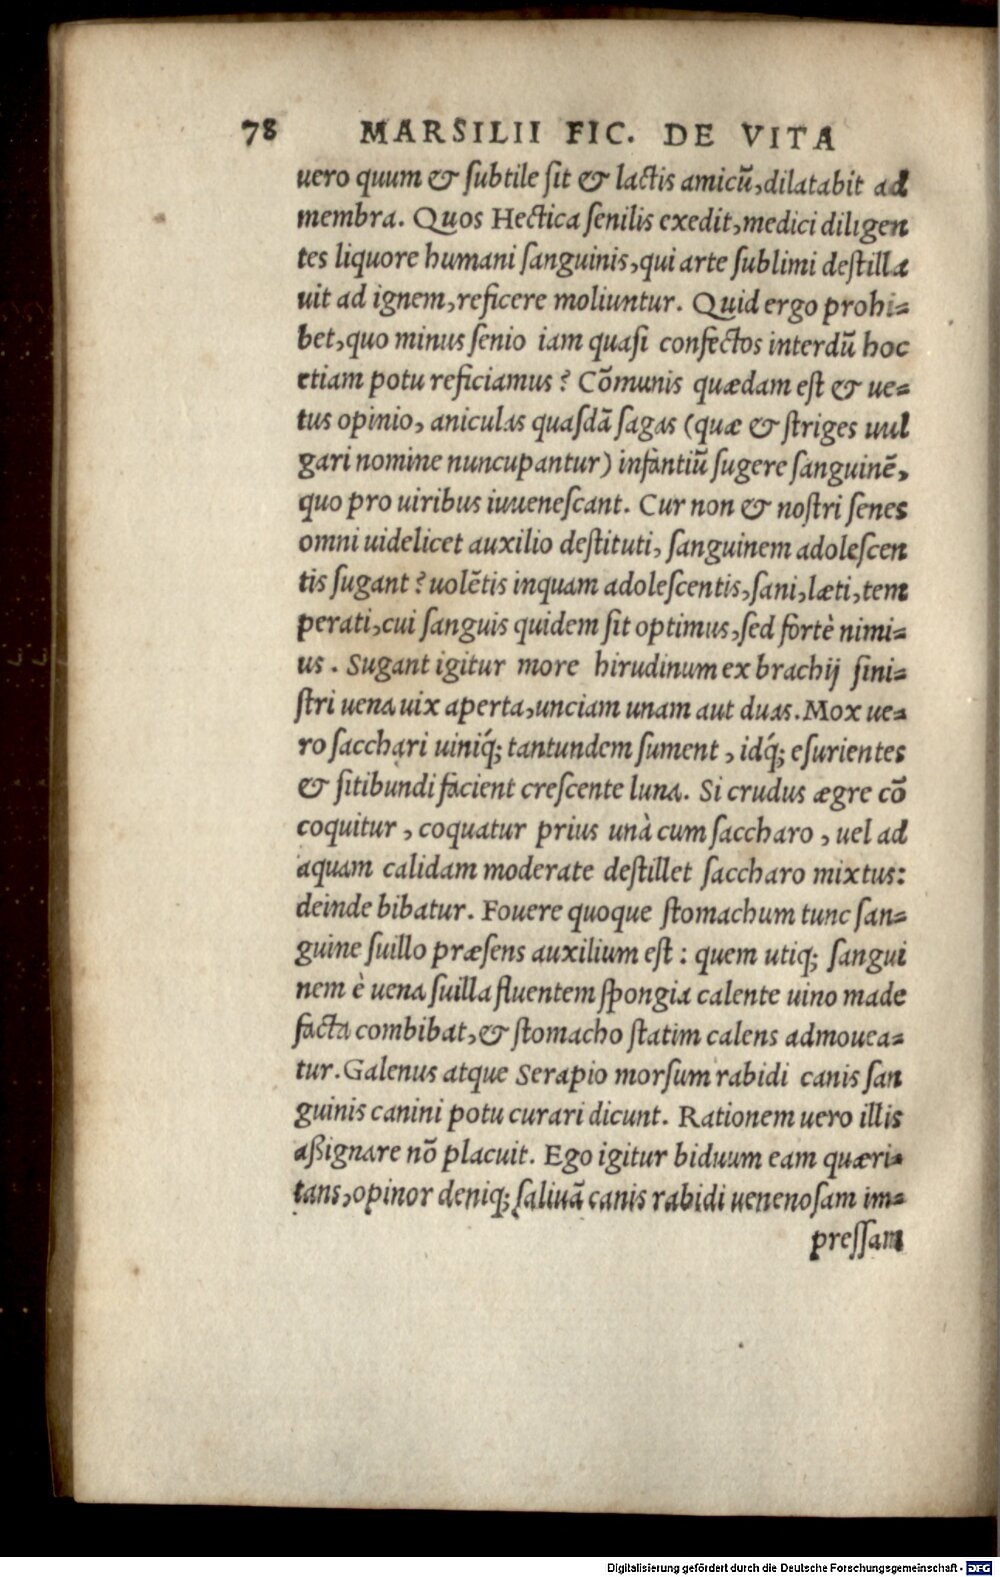 78 MARSILII FIC. DE VITA
uero quum & ſubtile ſit & lactis amicũ, dilatabit ad
membra. Quos Hectica ſenilis exedit, medici diligen
tes liquore humani ſanguinis, qui arte ſublimi deſtilla
uit ad ignem, reficere moliuntur. Quid ergo prohi⸗
bet, quo minus ſenio iam quaſi confectos interdũ hoc
etiam potu reficiamus? Cõmunis quædam eſt & ue⸗
tus opinio, aniculas quaſdã ſagas (quæ & ſtriges uul
gari nomine nuncupantur) infantiũ ſugere ſanguinẽ,
quo pro uiribus iuueneſcant. Cur non & noſtri ſenes
omni uidelicet auxilio deſtituti, ſanguinem adoleſcen
tis ſugant? uolẽtis inquam adoleſcentis, ſani, læti, tem
perati, cui ſanguis quidem ſit optimus, ſed fortè nimi⸗
us. Sugant igitur more hirudinum ex brachij ſini⸗
ſtri uena uix aperta, unciam unam aut duas. Mox ue⸗
ro ſacchari uiniq́; tantundem ſument, idq́; eſurientes
& ſitibundi facient creſcente luna. Si crudus ægre cõ
coquitur, coquatur prius unà cum ſaccharo, uel ad
aquam calidam moderate deſtillet ſaccharo mixtus:
deinde bibatur. Fouere quoque ſtomachum tunc ſan⸗
guine ſuillo præſens auxilium eſt: quem utiq; ſangui
nem è uena ſuilla fluentem ſpongia calente uino made
facta combibat, & ſtomacho ſtatim calens admouea⸗
tur. Galenus atque Serapio morſum rabidi canis ſan
guinis canini potu curari dicunt. Rationem uero illis
aßignare nõ placuit. Ego igitur biduum eam quæri⸗
tans, opinor deniq; ſaliuã canis rabidi uenenoſam im⸗
preſſam
Digitalisierung gefördert durch die Deutsche Forschungsgemeinschaft - DFG